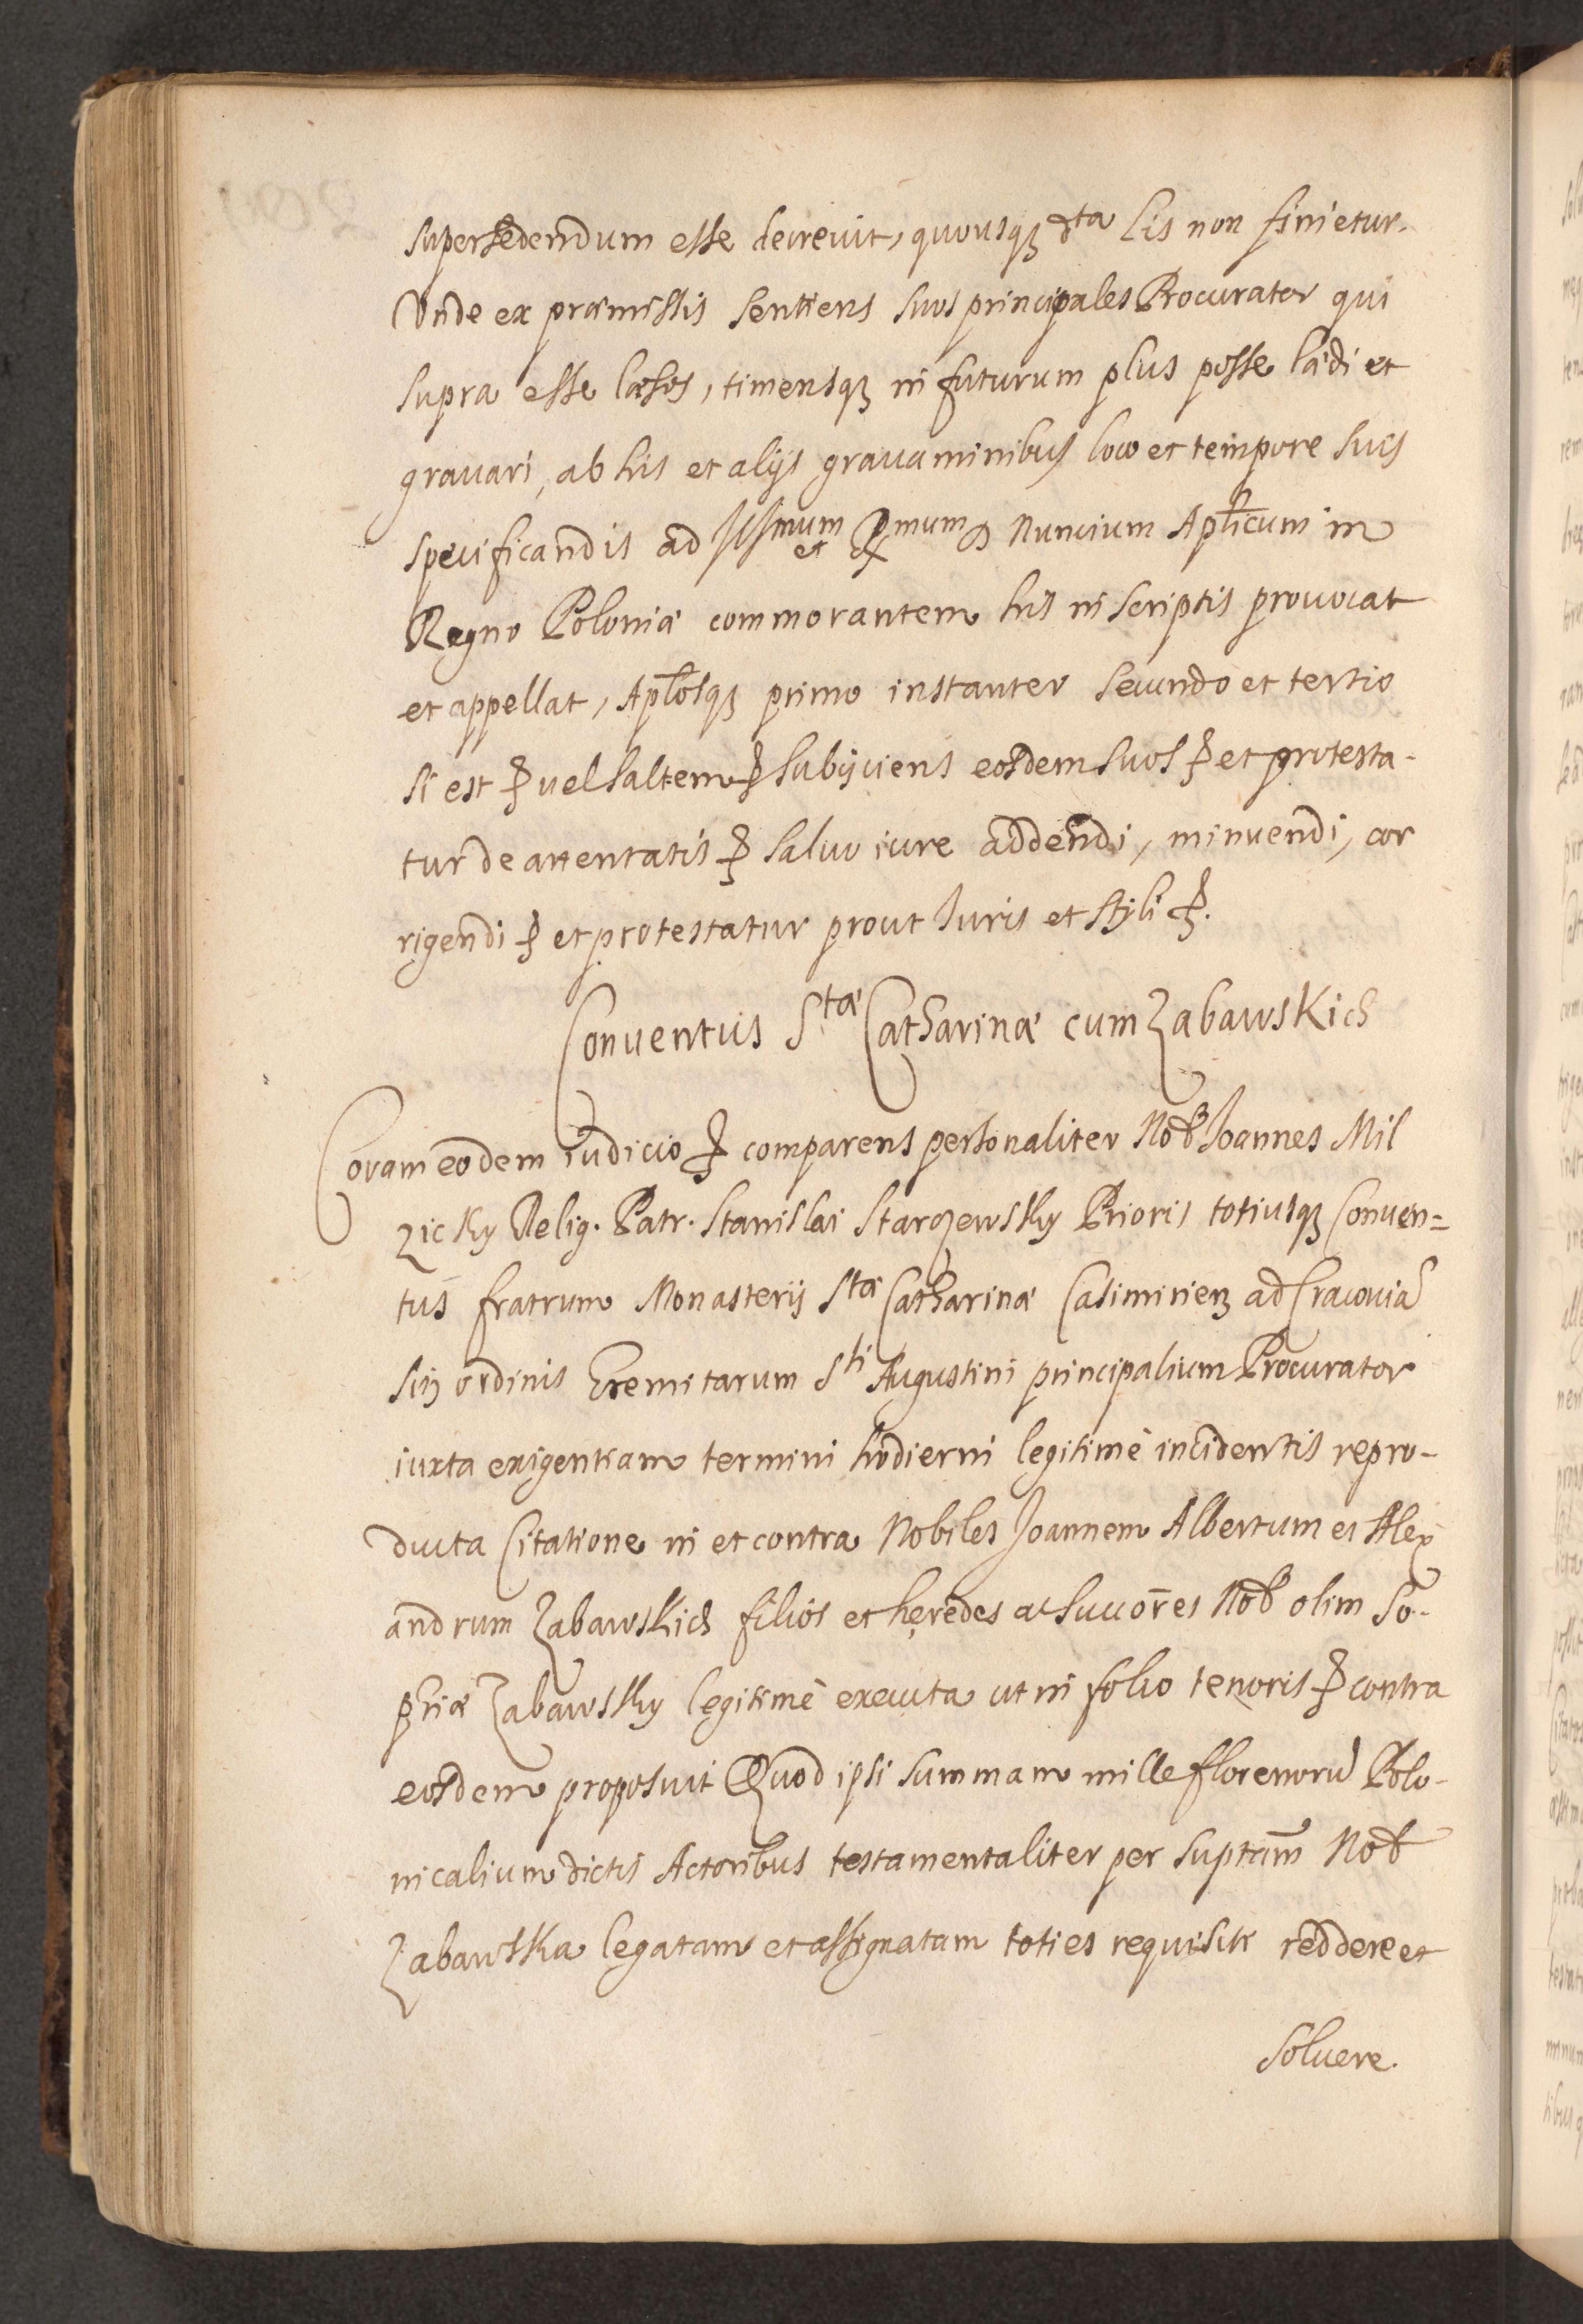 supersedendum esse decrevit, quousqꝫ dta Lis non finietur.
Unde ex præmissis sentiens suos principales Procurator qui
supra esse læsos, timensqꝫ in futurum plus posse lædi et
gravari, ab his et alijs gravaminibus loco et tempore suis
specificandis ad Illmum et Rmum D Nuncium Aplicum in
Regno Poloniæ commorantem his in scriptis provocat
et appellat, Aplosqꝫ primo instanter secundo et tertio
si est etc vel saltem etc subijciens eosdem suos etc et protesta-
tur de attentatis etc salvo iure addendi, minuendi, cor
rigendi etc et protestatur prout Iuris et styli etc.
Conventus Stæ Catharinæ cum Zabawskich
Coram eodem iudicio etc comparens personaliter Nob Joannes Mil
zicky Relig. Patr. Stanislai Starczewsky Prioris totiusqꝫ Conven=
tus fratrum Monasterij Stæ Catharinæ Casimirienꝫ ad Cracoviã
siti ordinis Eremitarum Sti Augustini principalium Procurator
iuxta exigentiam termini hodierni legitimè incidentis repro-
ducta Citatione in et contra Nobiles Joannem Albertum et Alex
andrum Zabawskich filios et hęredes ac succōres Nob olim So-
phiæ Zabawsky legitimè executa ut in folio tenoris etc contra
eosdem proposuit Quod ipsi summam mille florenorũ Polo-
nicalium dictis Actoribus testamentaliter per suptam̃ Nob
Zabawska legatam et assignatam toties requisiti reddere et
soluere.